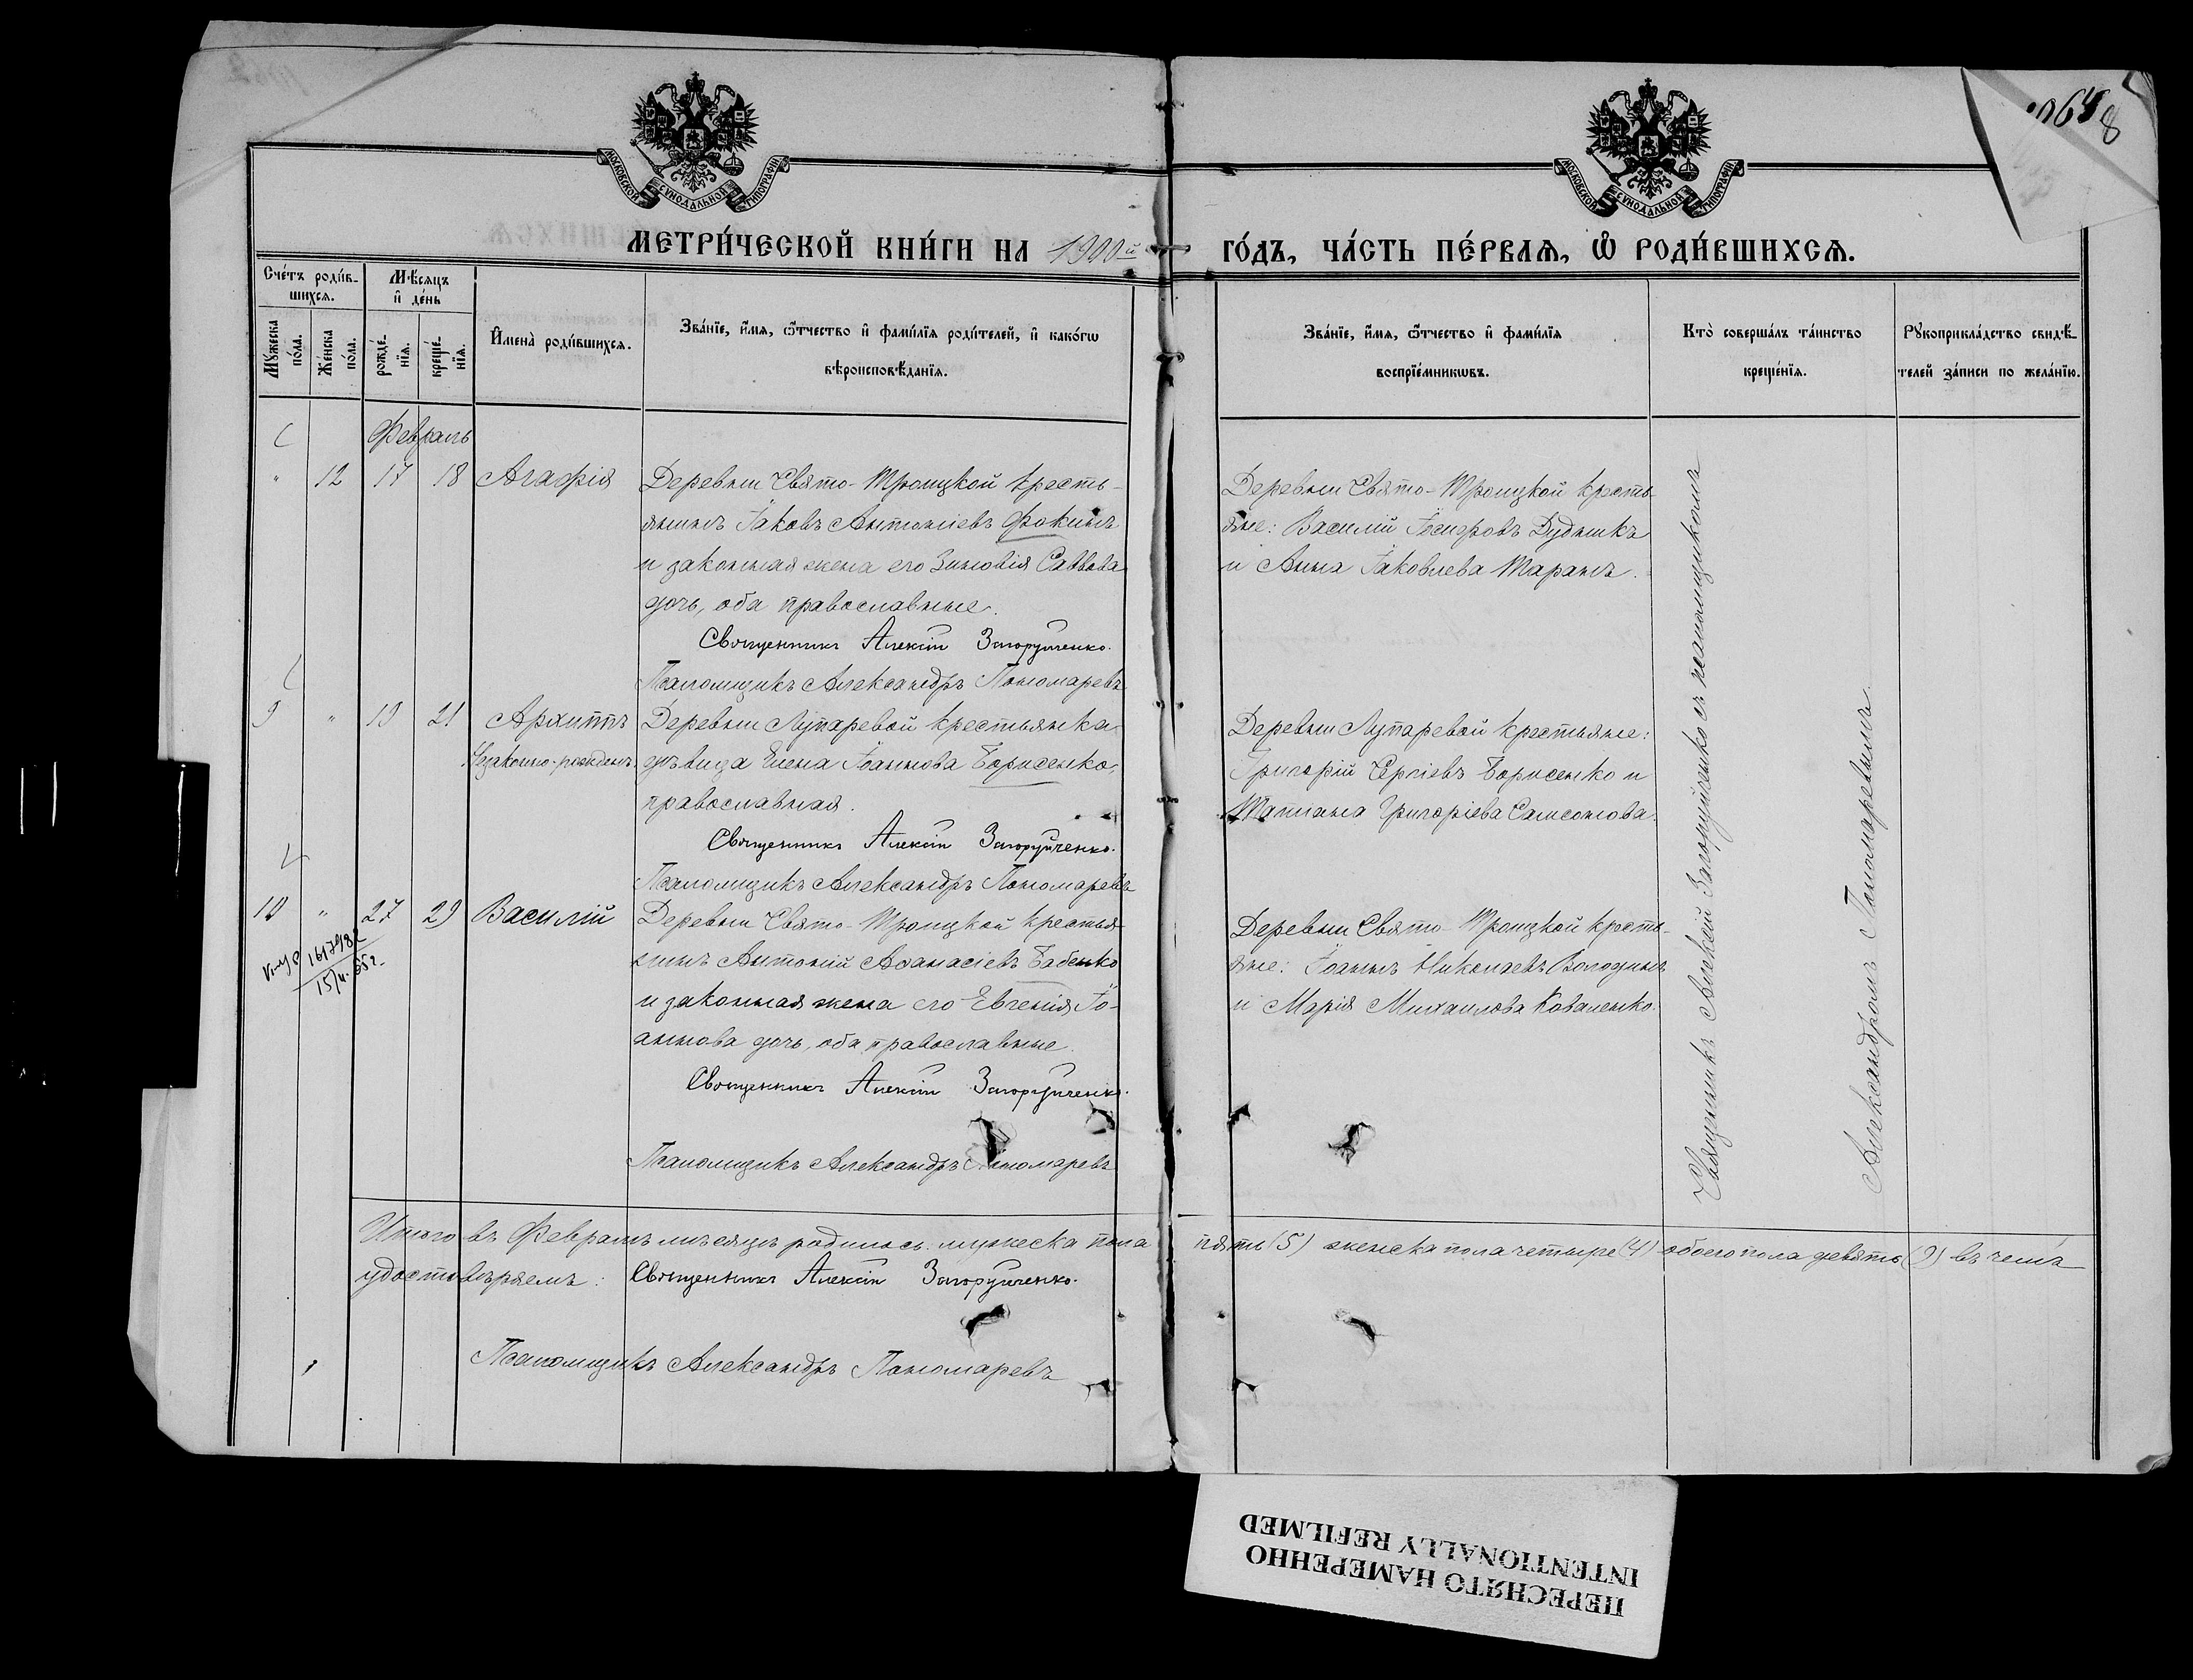 068
МОСКОВСКОЙ СУНОДАЛЬНОЙ ТИПОГРАФІИ
МОСКОВСКОЙ СУНОДАЛЬНОЙ ТИПОГРАФІИ
МЕТРИ́ЧЕСКОЙ КНИ́ГИ НА 1900й
ГО́ДЪ, ЧА́СТЬ ПЕ́РВАѦ, Ѡ҆ РОДИ́ВШИХСѦ.
Сче́тъ роди́в-
шихсѧ.
Мѣ́сѧцъ
и҆ де́нь
Мꙋ́жеска
по́ла.
Же́нска
по́ла.
рожде́-
нїѧ.
креще́-
нїѧ.
И҆мена̀ роди́вшихсѧ.
Зва́нїе, и҆́мѧ, ѻ҆́тчество и҆ фами́лїѧ роди́телей, и҆ како́гѡ
вѣроисповѣ́данїѧ.
Зва́нїе, и҆́мѧ, ѻ҆́тчество и҆ фами́лїѧ
воспрїе́мникѡвъ.
Кто̀ соверша́лъ та́инство
креще́нїѧ.
Рꙋкоприкла́дство свидѣ́-
телей за́писи по жела́нїю.
Февраль
" 12 17 18 Агафія
Деревни Свято-Троицкой кресть-
янинъ Іаковъ Антоніевъ Фокинъ
и законная жена его Зиновія Саввова
дочь, оба православные.
Священникъ Алексій Загоруйченко.
Псаломщикъ Александръ Пономаревъ
Деревни Свято-Троицкой кресть-
яне: Василій Іосифовъ Дудникъ
и Анна Іаковлева Таранъ.
9 " 19 21 Архиппъ
Незаконно-рожден.
Деревни Лупаревой крестьянка
дѣвица Елена Іоаннова Борисенко,
православная.
Священникъ Алексій Загоруйченко.
Псаломщикъ Александръ Пономаревъ
Деревни Лупаревой крестьяне:
Григорій Сергіевъ Борисенко и
Татіана Григоріева Самсонова.
10 " 27 29 Василій
15/
Деревни Свято-Троицкой крестья-
нинъ Антоній Аѳанасіевъ Бабенко
и законная жена его Евгенія Іо-
аннова дочь, оба православные.
Священникъ Алексій Загоруйченко.
Псаломщикъ Александръ Пономаревъ
Деревни Свято-Троицкой кресть-
яне: Іоаннъ Николаевъ Володинъ
и Марія Михаилова Коваленко.
Священникъ Алексій Загоруйченко съ псаломщикомъ
Александромъ Пономаревымъ.
Итого въ Февралѣ мѣсяцѣ родилось мужеска пола пять (5) женска пола четыре (4) обоего пола девять (9) въ чемъ
удостовѣряемъ: Священникъ Алексій Загоруйченко.
Псаломщикъ Александръ Пономаревъ
ПЕРЕСНЯТО НАМЕРЕННО
INTENTIONALLY REFILMED